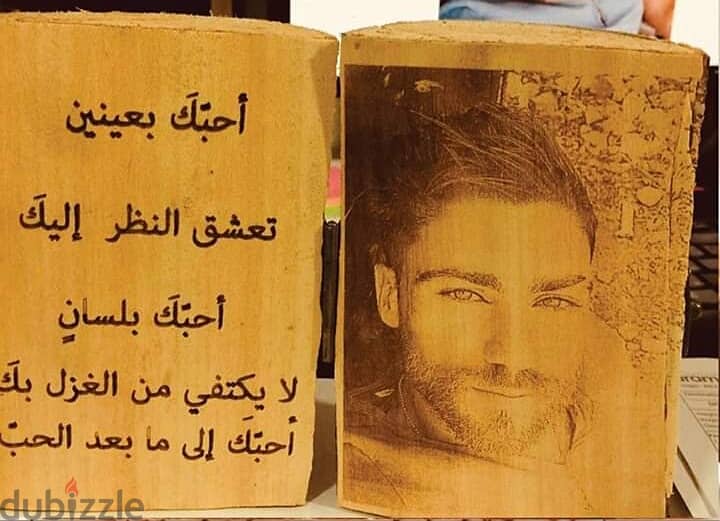 أحبّكَ بعينين
تعشق النظر إليكَ
أحبّكَ بلسانٍ
لا يكتفي من الغزل بكَ
أحبّكَ إلى ما بعد الحبّ
dubizzle